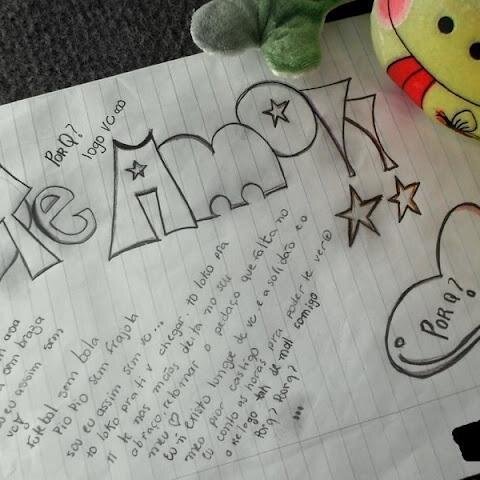 Te Amo!!
Por Q?
logo vc ∞
sem asa
sem braga
sou eu assim sem
vc
futebol sem bola
Piu Piu sem frajola
sou eu assim sem vc...
to loko pra ti v chegar. to loko pra
ti te nas mãos deita no seu
abraço, retornar o pedaço que falta no
meu ♡
Eu ñ existo longue de vc e a solidão e o
meu pior castigo
eu conto as horas pra poder te ver
o relogo tah de mal comigo
Porq? Porq?
...
Por Q?